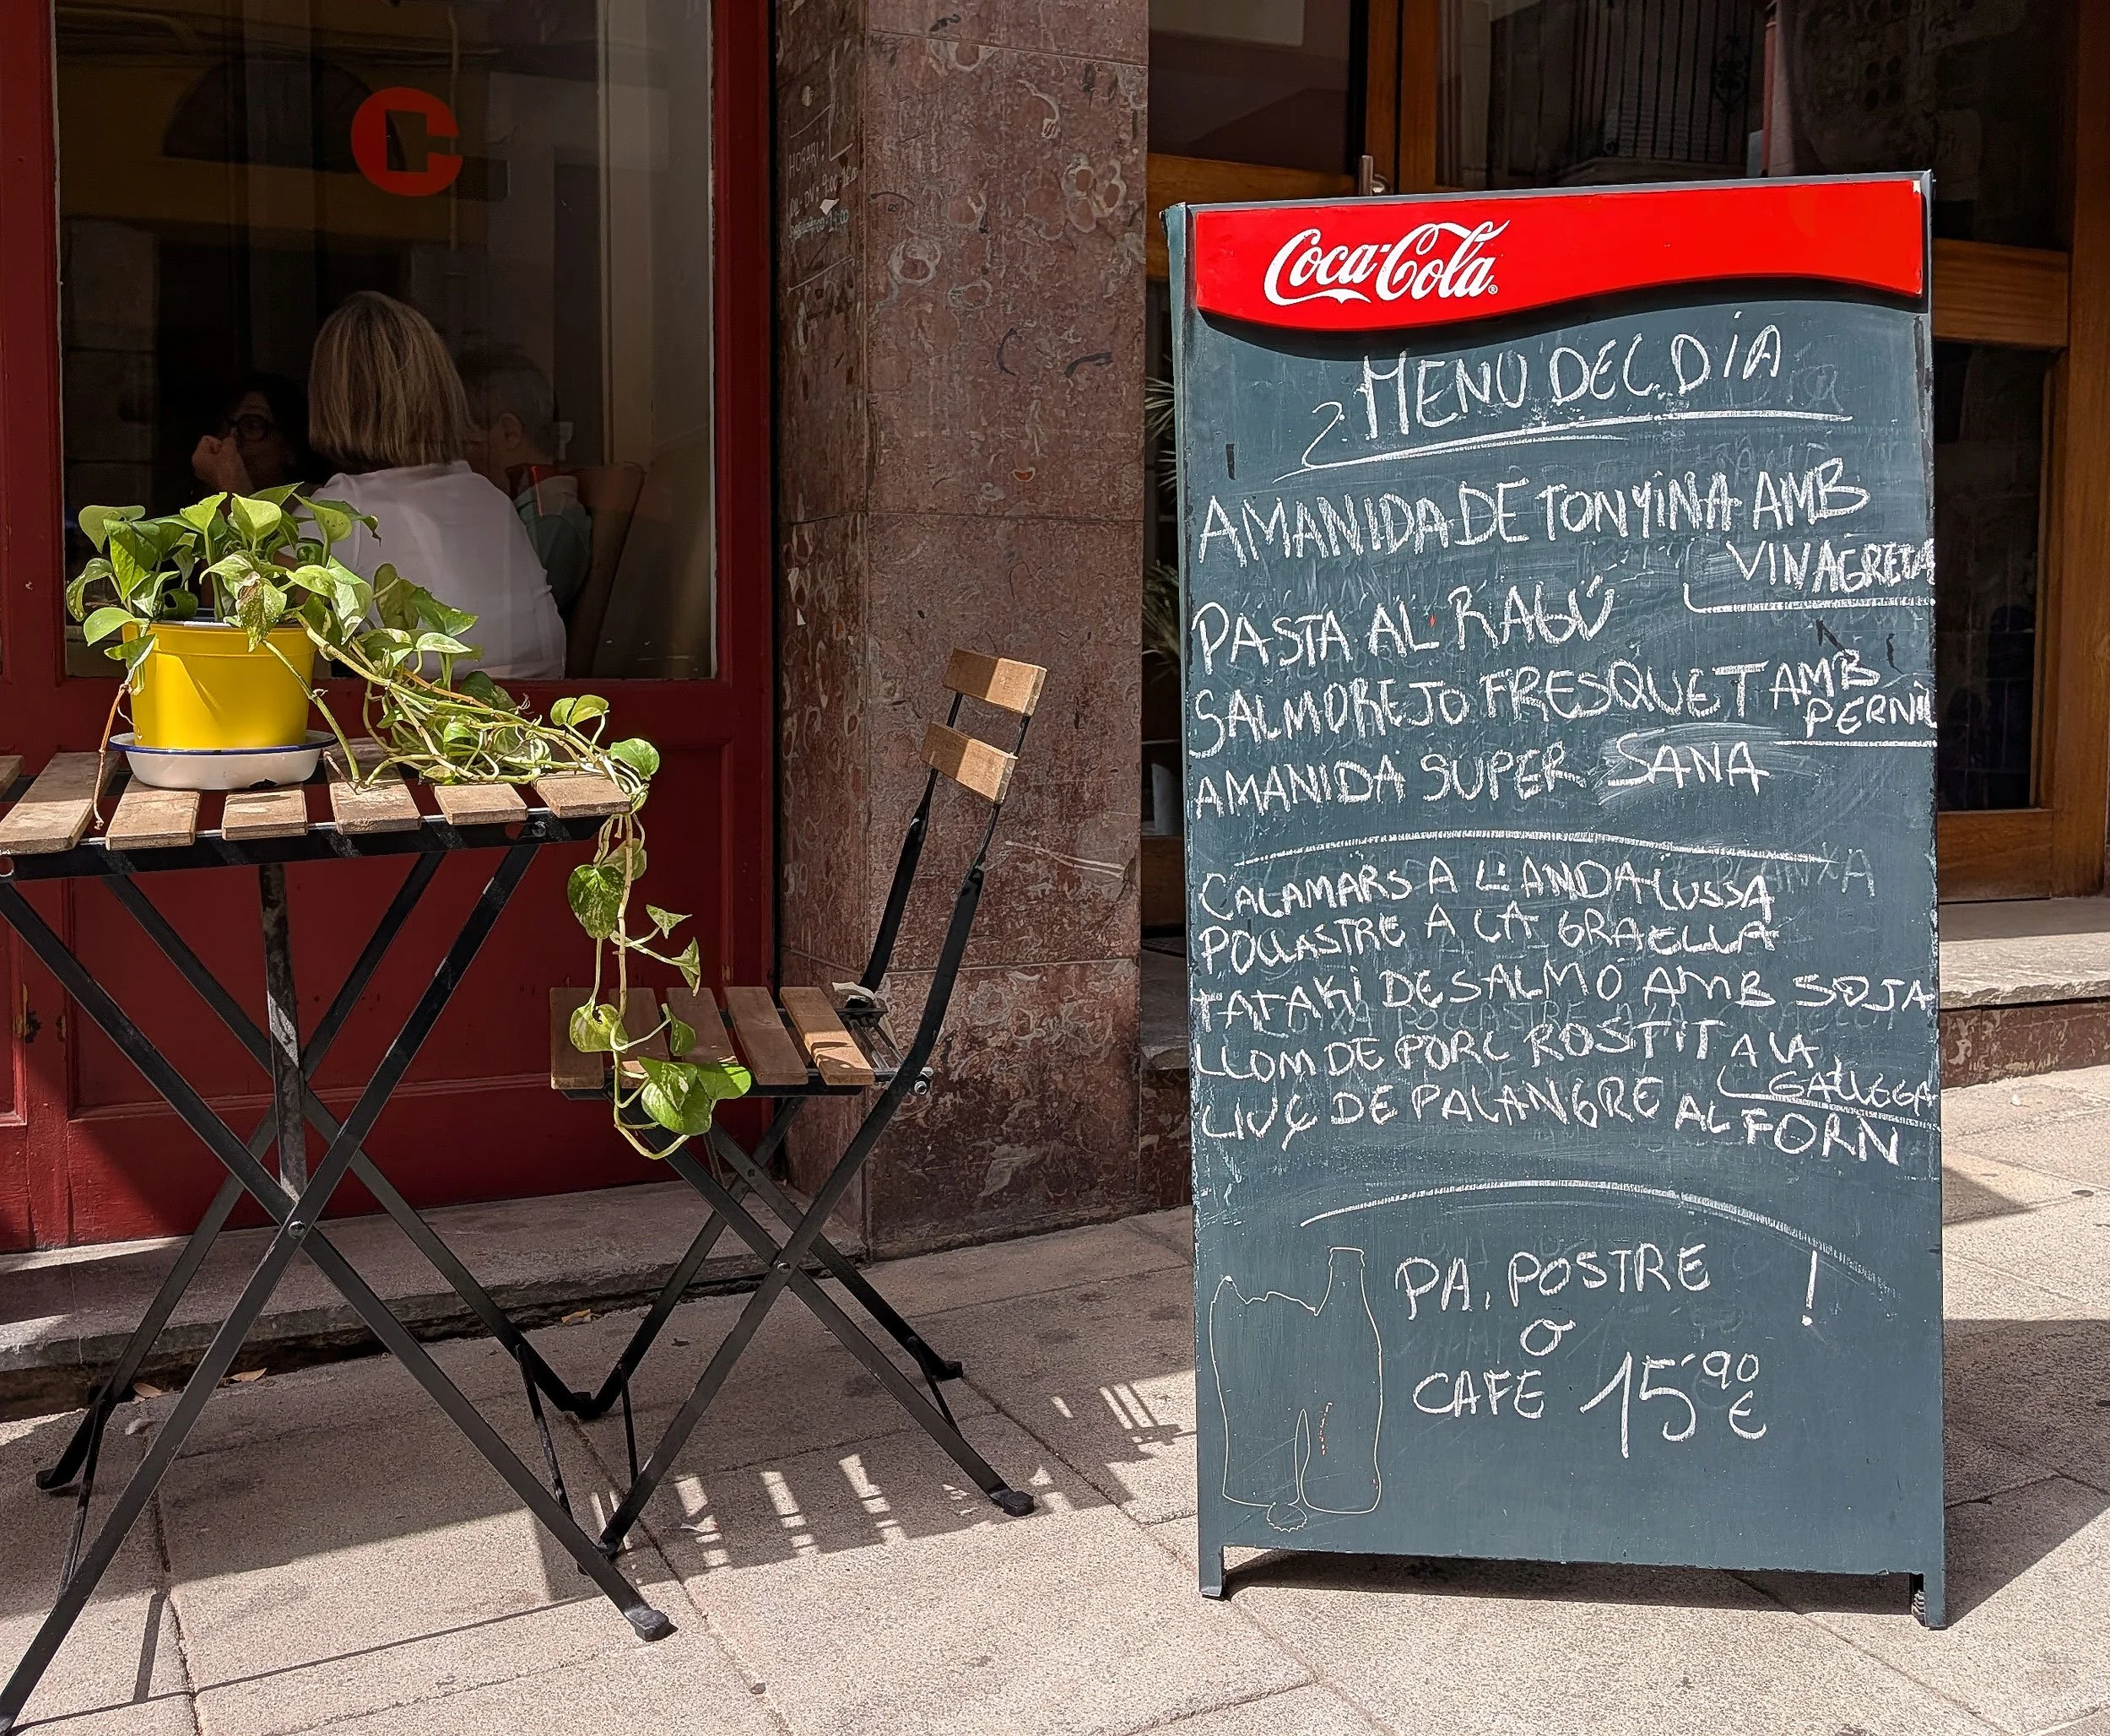 HORARI:
Coca-Cola
MENU DEL DÍA
AMANIDA DE TONYINA AMB
VINAGRETA
PASTA AL RAGÚ
SALMOREJO FRESQUET AMB
PERNIL
AMANIDA SUPER SANA
CALAMARS A L'ANDALUSSA
POLLASTRE A LA GRAELLA
TATAKI DE SALMÓ AMB SOJA
LLOM DE PORC ROSTIT A LA
GALLEGA
LLUÇ DE PALANGRE AL FORN
PA, POSTRE !
O
CAFE 15'90 €